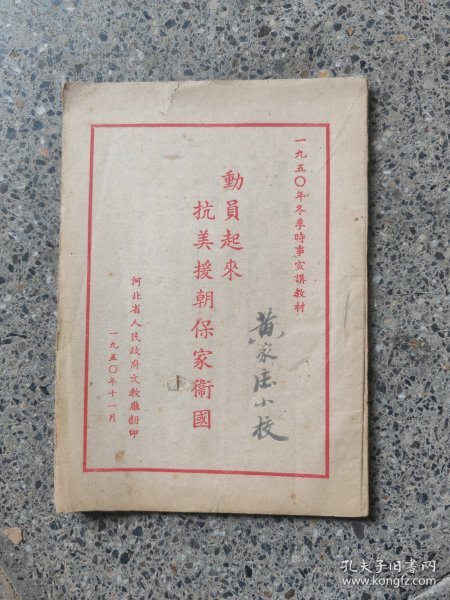 一九五〇年冬季時事宣講教材
動員起來
抗美援朝保家衞國
黄家庄小校
河北省人民政府文教廳翻印
一九五〇年十一月
孔夫子旧书网